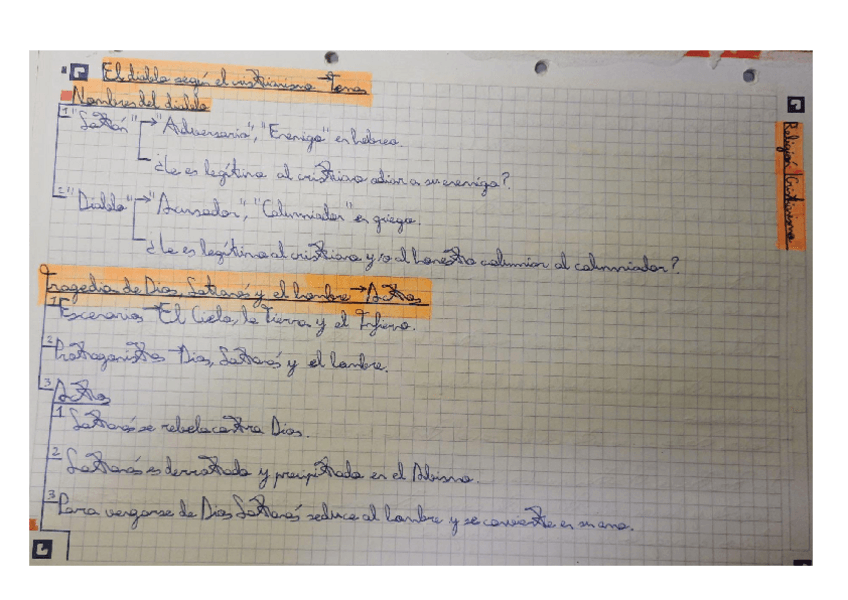 El diablo según el cristianismo → Temas
Nombres del diablo
1 "Satán" → "Adversario", "Enemigo" en hebreo.
¿Le es legítimo al cristiano odiar a su enemigo?
2 "Diablo" → "Acusador", "Calumniador" en griego.
¿Le es legítimo al cristiano y/o al honesto calumniar al calumniador?
Tragedia de Dios, Satanás y el hombre → Actos
1 Escenarios → El Cielo, la Tierra y el Infierno.
2 Protagonistas Dios, Satanás y el hombre.
3 Actos
1 Satanás se rebela contra Dios.
2 Satanás es derrotado y precipitado en el Abismo.
3 Para vengarse de Dios Satanás seduce al hombre y se convierte en su amo.
Religión Cristianismo